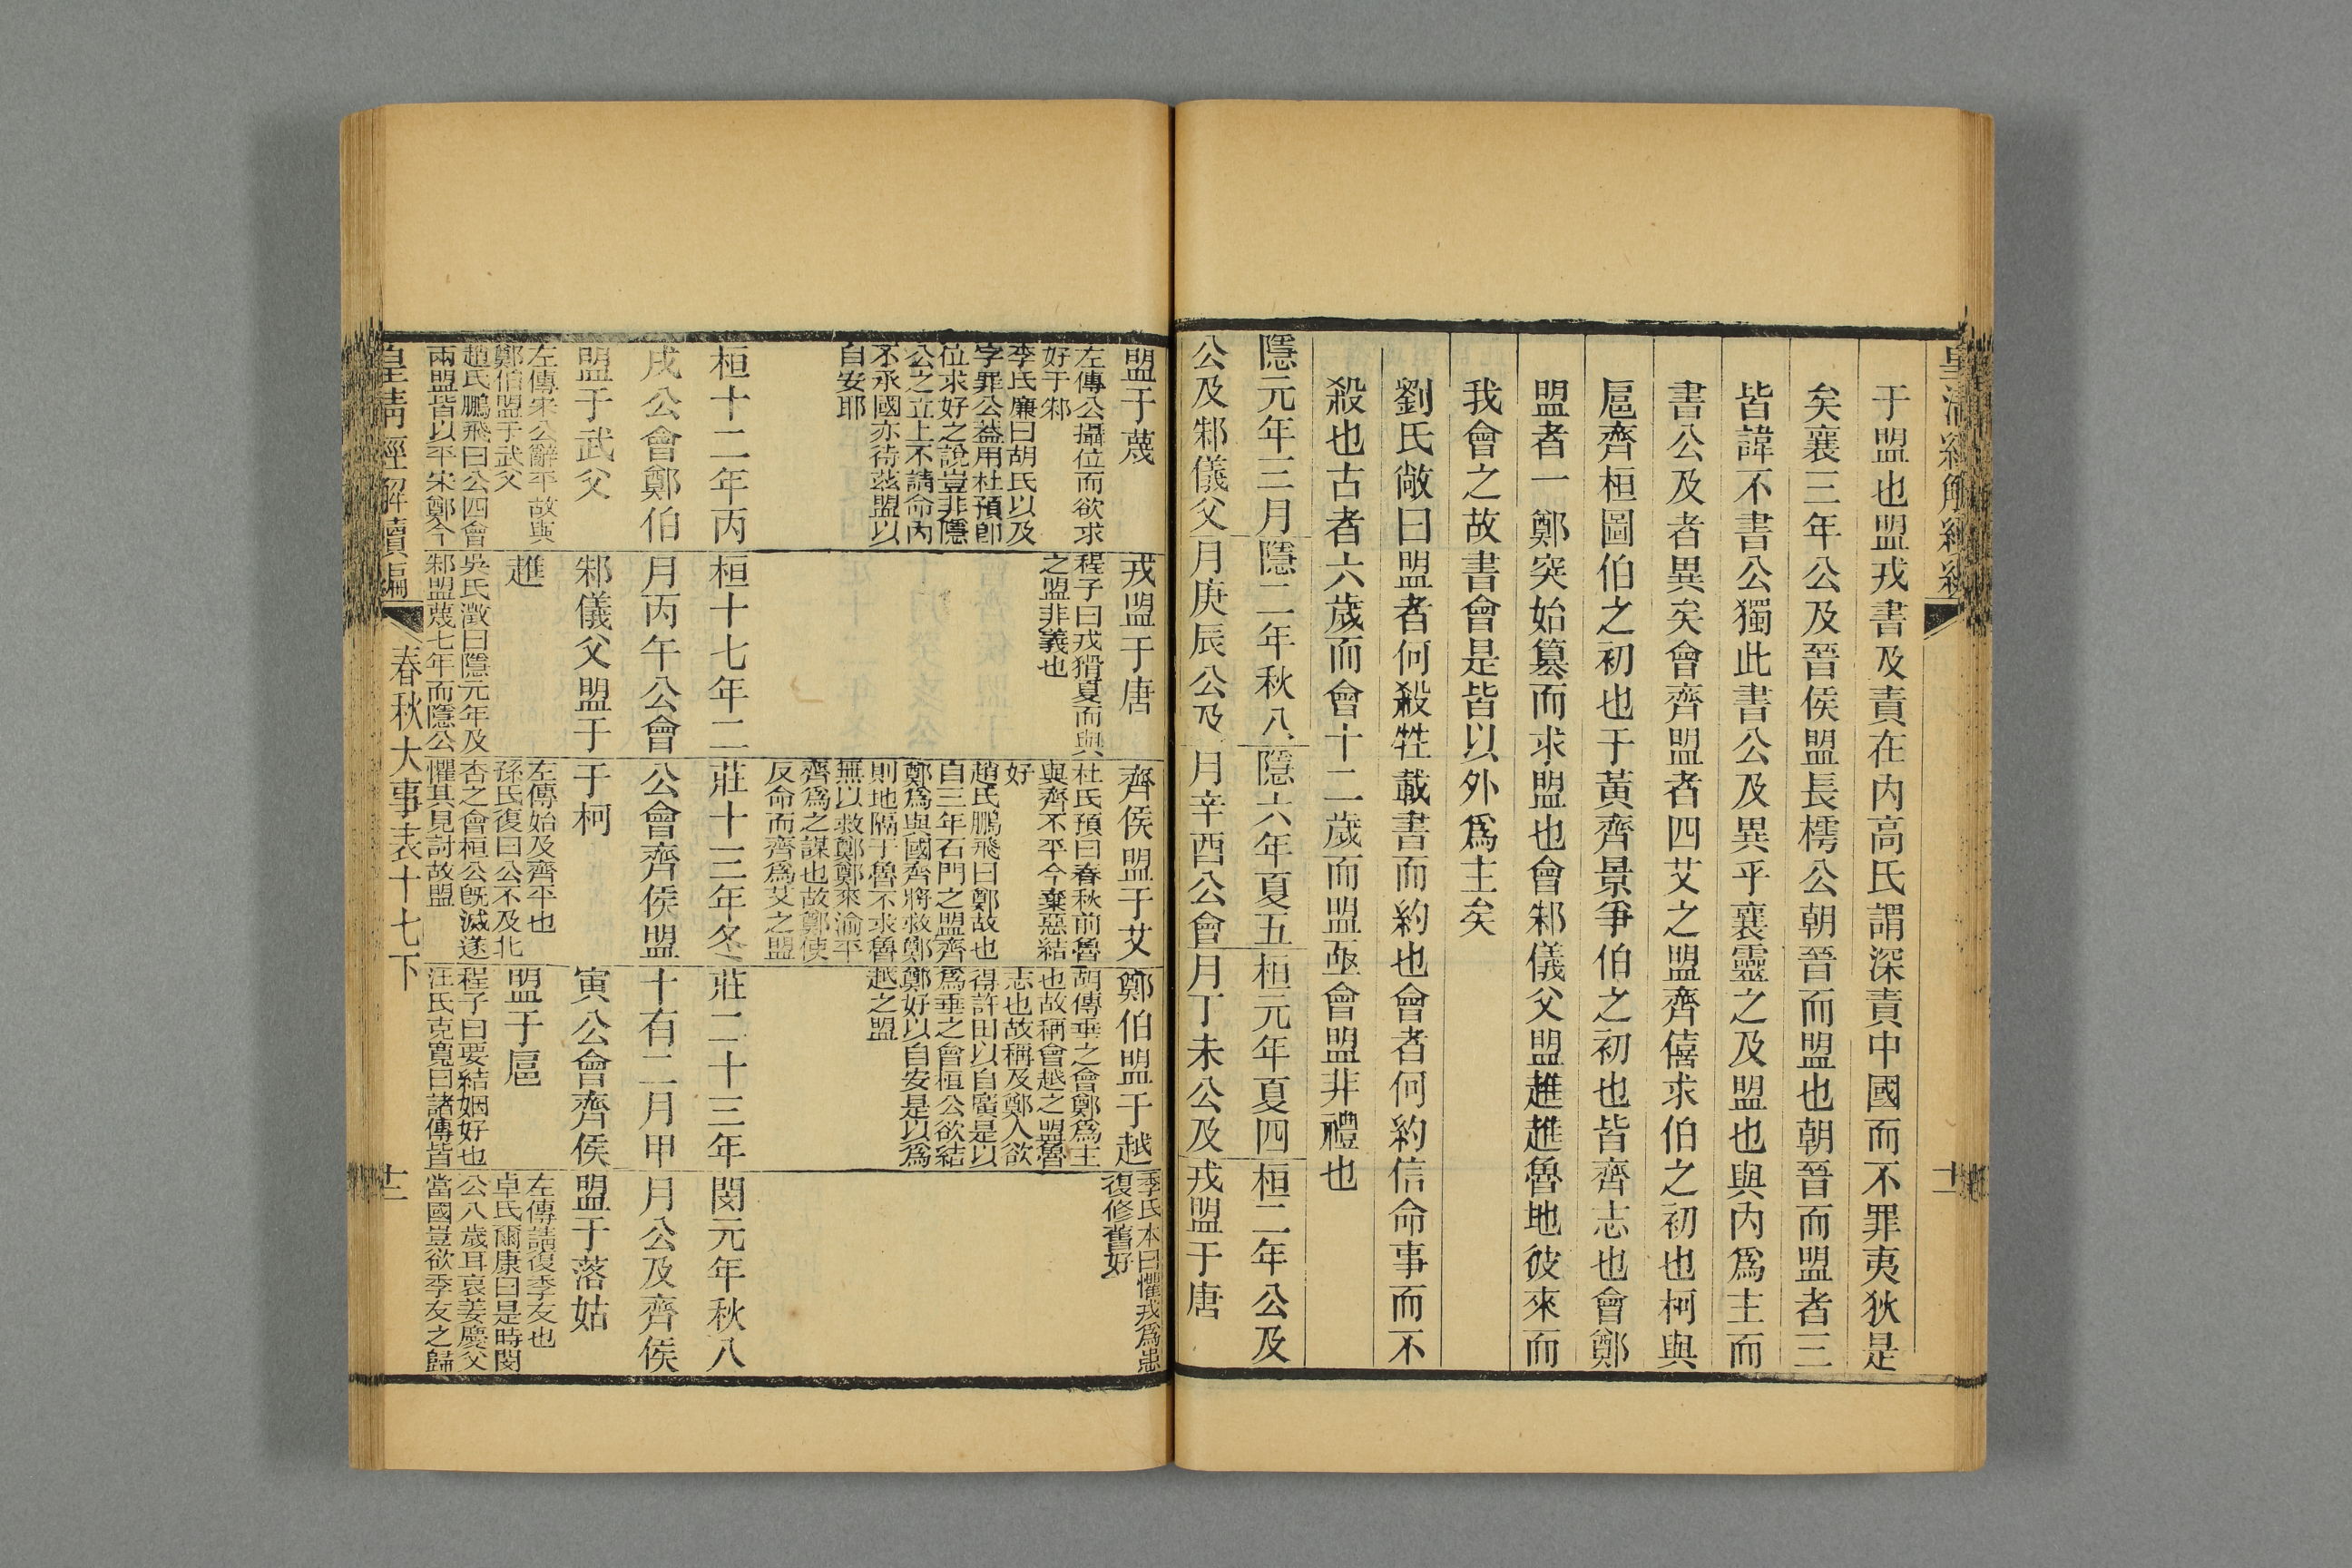 皇清經解續編
十一
于盟也盟戎書及責在內高氏謂深責中國而不罪夷狄是
矣襄三年公及晉侯盟長樗公朝晉而盟也朝晉而盟者三
皆諱不書公獨此書公及異乎襄靈之及盟也與內爲主而
書公及者異矣會齊盟者四艾之盟齊僖求伯之初也柯與
扈齊桓圖伯之初也于黃齊景爭伯之初也皆齊志也會鄭
盟者一鄭突始篡而求盟也會邾儀父盟趡趡魯地彼來而
我會之故書會是皆以外爲主矣
劉氏敞曰盟者何殺牲載書而約也會者何約信命事而不
殺也古者六歲而會十二歲而盟亟會盟非禮也
隱元年三月
公及邾儀父
盟于蔑
左傳公攝位而欲求
好于邾
李氏廉曰胡氏以及
字罪公葢用杜預卽
位求好之說豈非隱
公之立上不請命內
不承國亦待茲盟以
自安耶
隱二年秋八
月庚辰公及
戎盟于唐
程子曰戎猾夏而與
之盟非義也
隱六年夏五
月辛酉公會
齊侯盟于艾
杜氏預曰春秋前魯
與齊不平今棄惡結
好
趙氏鵬飛曰鄭故也
自三年石門之盟齊
鄭爲與國齊將救鄭
則地隔于魯不求魯
無以救鄭鄭來渝平
齊爲之謀也故鄭使
反命而齊爲艾之盟
桓元年夏四
月丁未公及
鄭伯盟于越
胡傳垂之會鄭爲主
也故稱會越之盟魯
志也故稱及鄭人欲
得許田以自廣是以
爲垂之會桓公欲結
鄭好以自安是以爲
越之盟
桓二年公及
戎盟于唐
季氏本曰懼戎爲患
復修舊好
桓十二年丙
戌公會鄭伯
盟于武父
左傳宋公辭平故與
鄭伯盟于武父
趙氏鵬飛曰公四會
兩盟皆以平宋鄭今
桓十七年二
月丙午公會
邾儀父盟于
趡
吳氏澂曰隱元年及
邾盟蔑七年而隱公
莊十三年冬
公會齊侯盟
于柯
左傳始及齊平也
孫氏復曰公不及北
杏之會桓公旣滅遂
懼其見討故盟
莊二十三年
十有二月甲
寅公會齊侯
盟于扈
程子曰要結姻好也
汪氏克寬曰諸傳皆
閔元年秋八
月公及齊侯
盟于落姑
左傳請復季友也
卓氏爾康曰是時閔
公八歲耳哀姜慶父
當國豈欲季友之歸
皇淸經解續編
春秋大事表十七下
十二